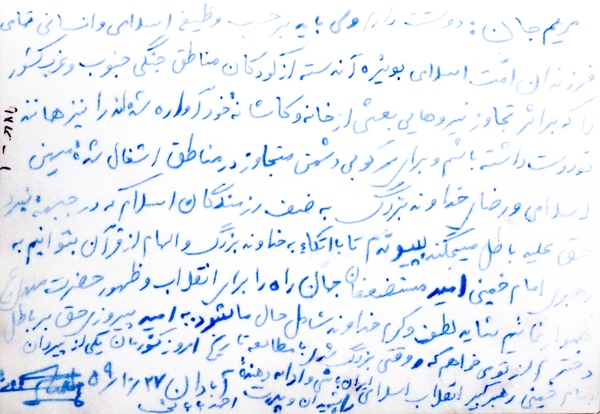 مریم جان: دوست دارم ولی باید بر حسب وظیفه اسلامی و انسانی تمامی
فرزندان امت اسلامی بویژه آندسته از کودکان مناطق جنگی جنوب و غرب کشور
را که بر اثر تجاوز نیروهایی بعثی از خانه و کاشانه خود آواره شده‌اند را نیز همانند
تو دوست داشته باشم و برای سرکوبی دشمن متجاوز در مناطق اشغال شده میهن
اسلامی و رضای خداوند بزرگ به صف رزمندگان اسلام که در جبهه نبرد
حق علیه باطل میجنگند بپیوندم تا با اتکاء به خداوند بزرگ و الهام از قرآن بتوانیم به
رهبری امام خمینی امید مستضعفان جهان راه را برای انقلاب و ظهور حضرت مهدی
شاید لطف و کرم خداوند شامل حال ما شود به امید پیروزی حق بر باطل
دخترم از تو می‌خواهم که وقتی بزرگ شدی با مطالعه تاریخ امروز کشورمان یکی از پیروان
امام خمینی رهبر کبیر انقلاب اسلامی ایران باشی و ادامه دهنده
آبادان ۵۹/۱۰/۲۷